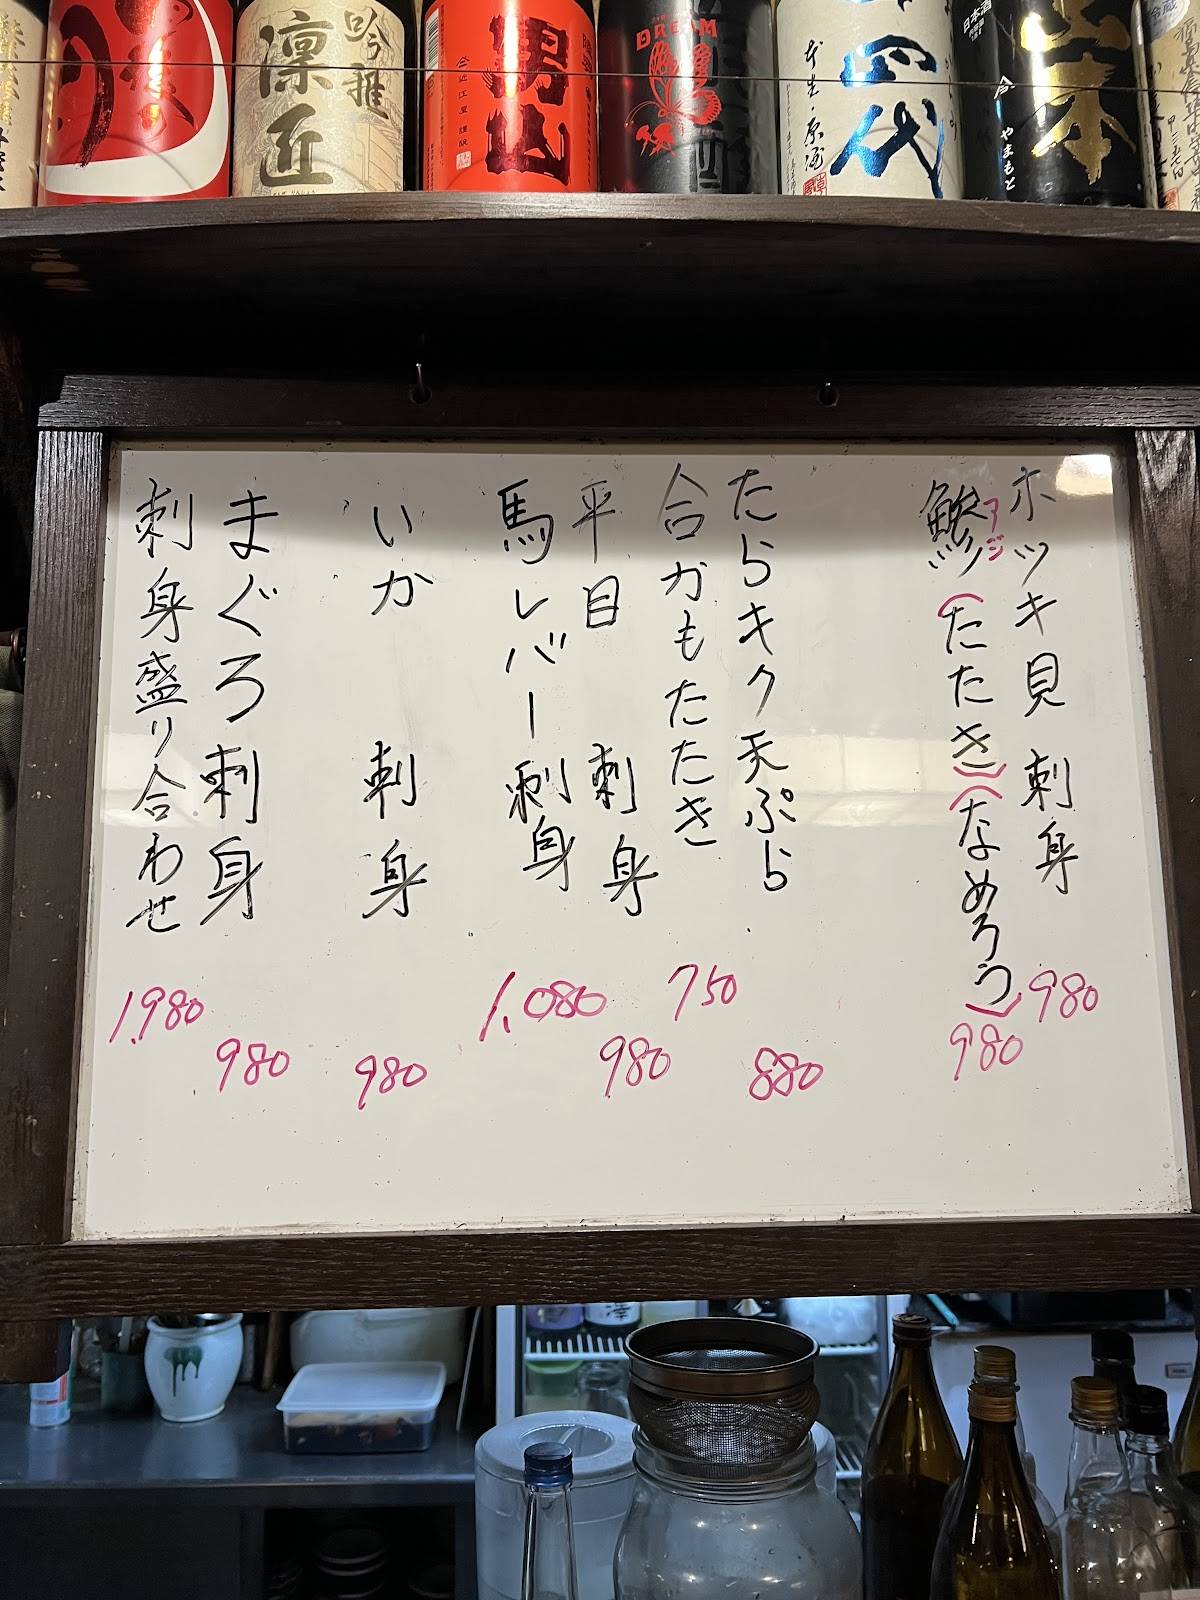 吟雅
凛匠
男山
DREAM
十四代
本生・原酒
日本酒
山本
やまもと
冷蔵
ホッキ貝 刺身 980
アジ
鯵 (たたき)(なめろう) 980
たらキク天ぷら 880
合がもたたき 750
平目 刺身 980
馬レバー刺身 1,080
いか 刺身 980
まぐろ刺身 980
刺身盛り合わせ 1,980